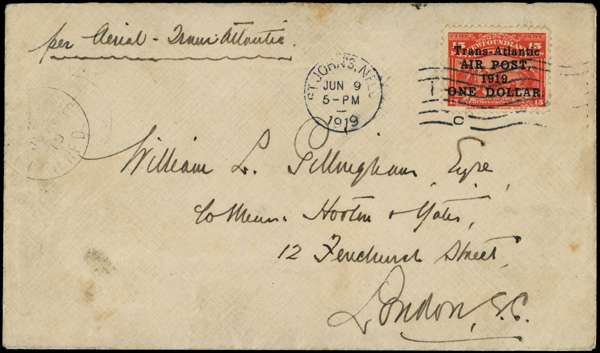 per Aerial - Trans Atlantic
ST. JOHN'S, NFLD
JUN 9
5-PM
1919
15 NEWFOUNDLAND 15
Trans-Atlantic
AIR POST,
1919
ONE DOLLAR.
William L. Gillingham, Esqre
c/o Messrs. Hooten & Yates,
12 Fenchurch Street,
London, E.C.